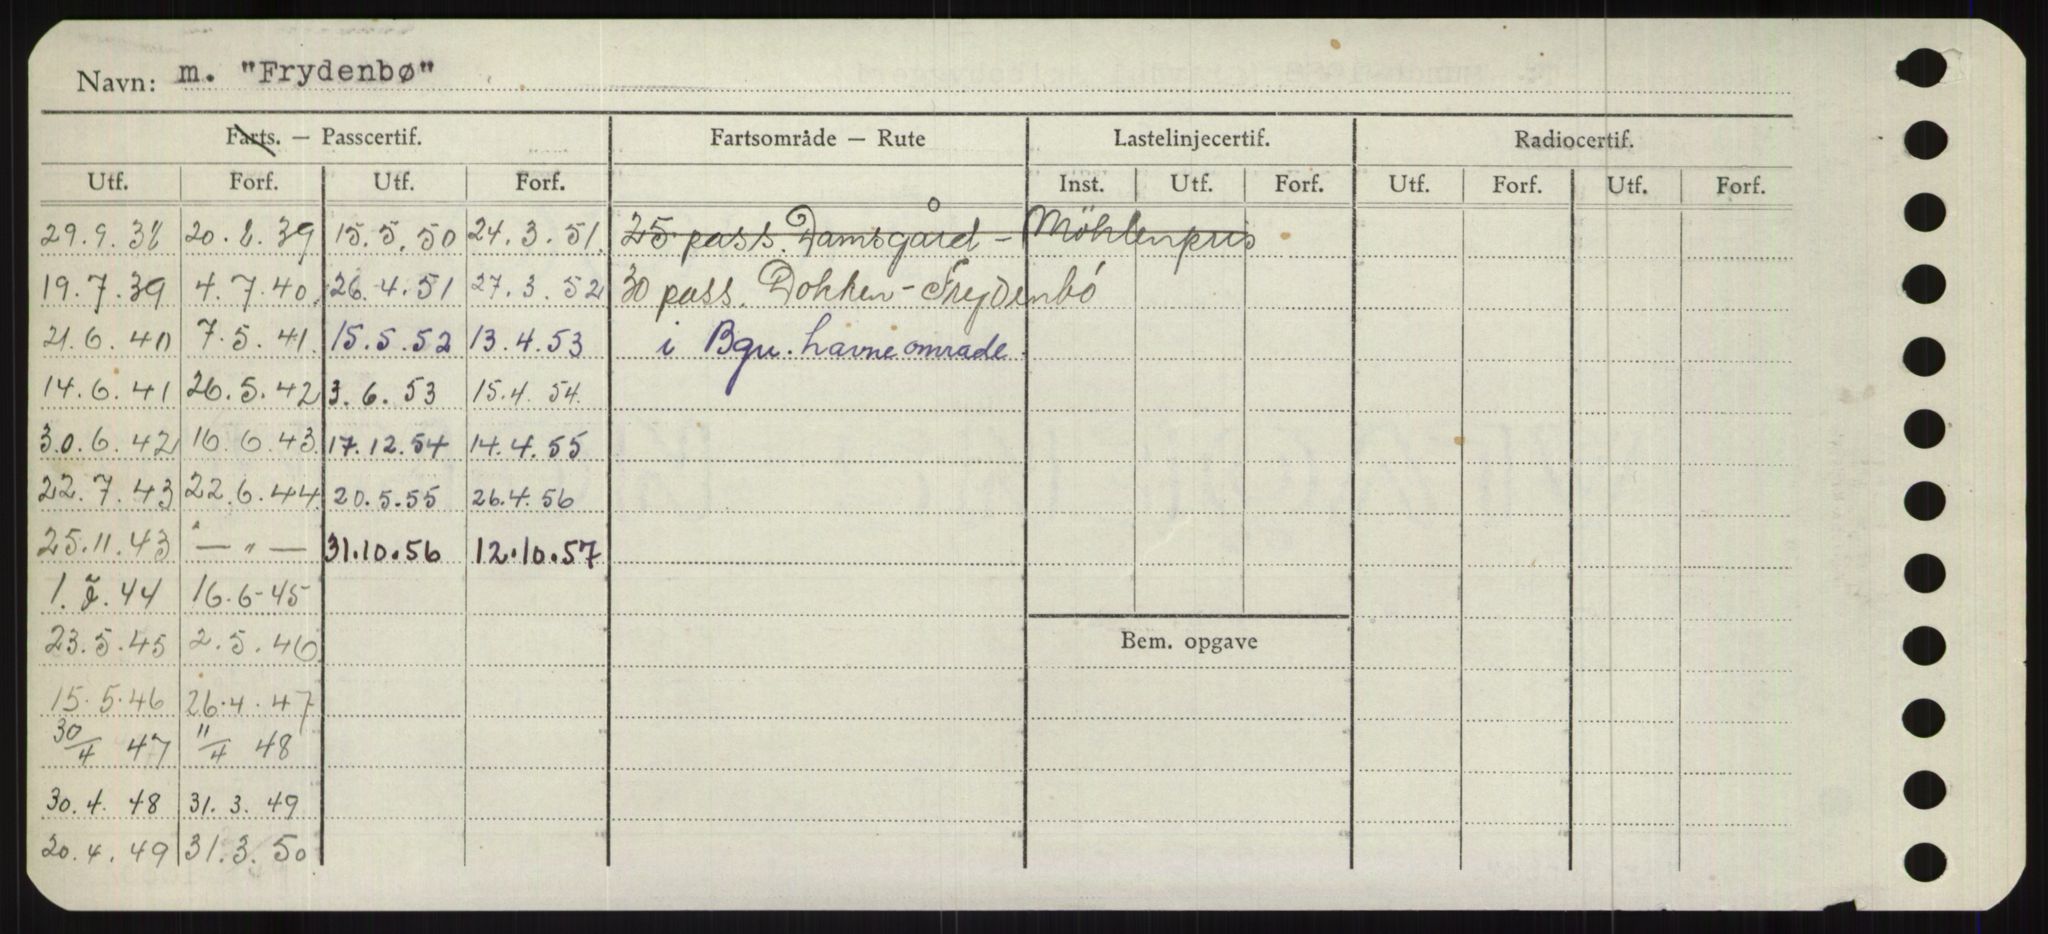 Navn: m. "Frydenbø"
Farts. — Passcertif. Fartsområde — Rute Lastelinjecertif. Radiocertif.
Utf. Forf. Utf. Forf. Inst. Utf. Forf. Utf. Forf. Utf. Forf.
29.9.38 20.8.39 15.5.50 24.3.51. 25 pass. Damsgård - Möhlenpris
19.7.39 4.7.40. 26.4.51 27.3.52 30 pass. Dokken - Frydenbó
21.6.40 7.5.41. 15.5.52 13.4.53 i Bgn. havneområde.
14.6.41 26.5.42 3.6.53 15.4.54.
30.6.42 16.6.43. 17.12.54 14.4.55
22.7.43 22.6.44. 20.5.55 26.4.56
25.11.43 — " — 31.10.56 12.10.57
1. 44 16.6-45
23.5.45 2.5.46 Bem. opgave
15.5.46 26.4.47
30/4 47 11/4 48
30.4.48 31.3.49
20.4.49 31.3.50